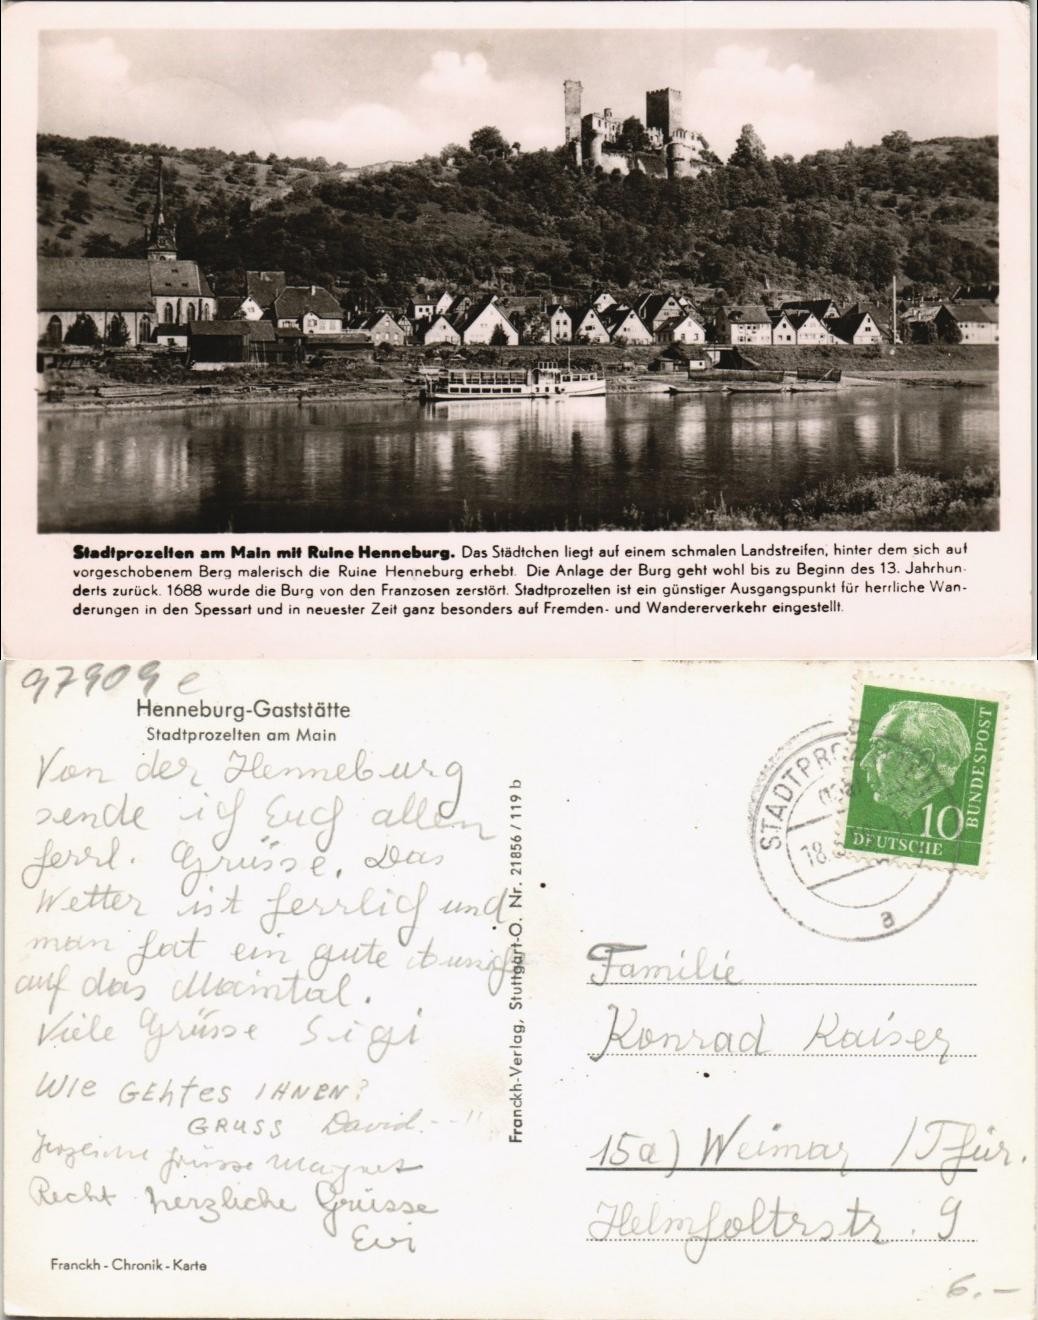 Stadtprozelten am Main mit Ruine Henneburg. Das Städtchen liegt auf einem schmalen Landstreifen, hinter dem sich auf
vorgeschobenem Berg malerisch die Ruine Henneburg erhebt. Die Anlage der Burg geht wohl bis zu Beginn des 13. Jahrhun-
derts zurück. 1688 wurde die Burg von den Franzosen zerstört. Stadtprozelten ist ein günstiger Ausgangspunkt für herrliche Wan-
derungen in den Spessart und in neuester Zeit ganz besonders auf Fremden- und Wandererverkehr eingestellt.
97909 e
Henneburg-Gaststätte
Stadtprozelten am Main
Von der Henneburg
sende ich Euch allen
herzl. Grüsse. Das
Wetter ist herrlich und
man hat ein gute
auf das Maintal.
Viele Grüsse Sigi
WIE GEHTES IHNEN?
GRUSS David
Grüsse
Recht herzliche Grüsse
Evi
Franckh-Chronik-Karte
Franckh-Verlag, Stuttgart-O. Nr. 21856/119 b
STADTPROZELTEN
18.
a
10
DEUTSCHE
BUNDESPOST
Familie
Konrad Kaiser
15a) Weimar /Thür.
Helmholtzstr. 9
6.-